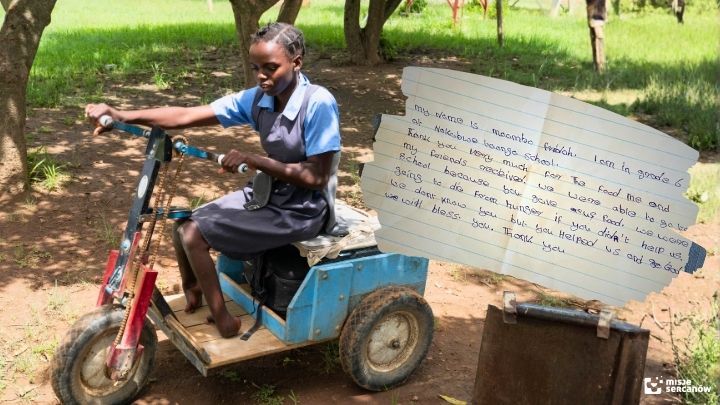 my name is moomba fridah. I am in grade 6
at Nakabwe baanga school.
Thank you very much for the food me and
my friends received. we were able to go to
School because you gave us food. we were
going to die from hunger if you didn't help us,
we dont know you but you helped us and god
will bless you. Thank you
misje
sercanów